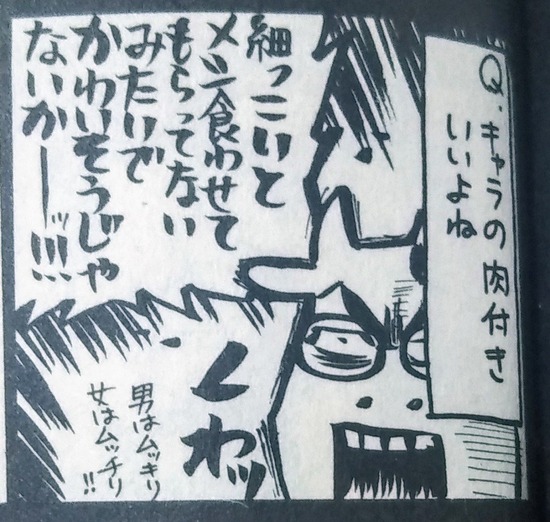 Q.キャラの肉付き
いいよね
細っこいと
メシ食わせて
もらってない
みたいで
かわいそうじゃ
ないかーッ!!!
くわッ
男はムッキリ
女はムッチリ!!